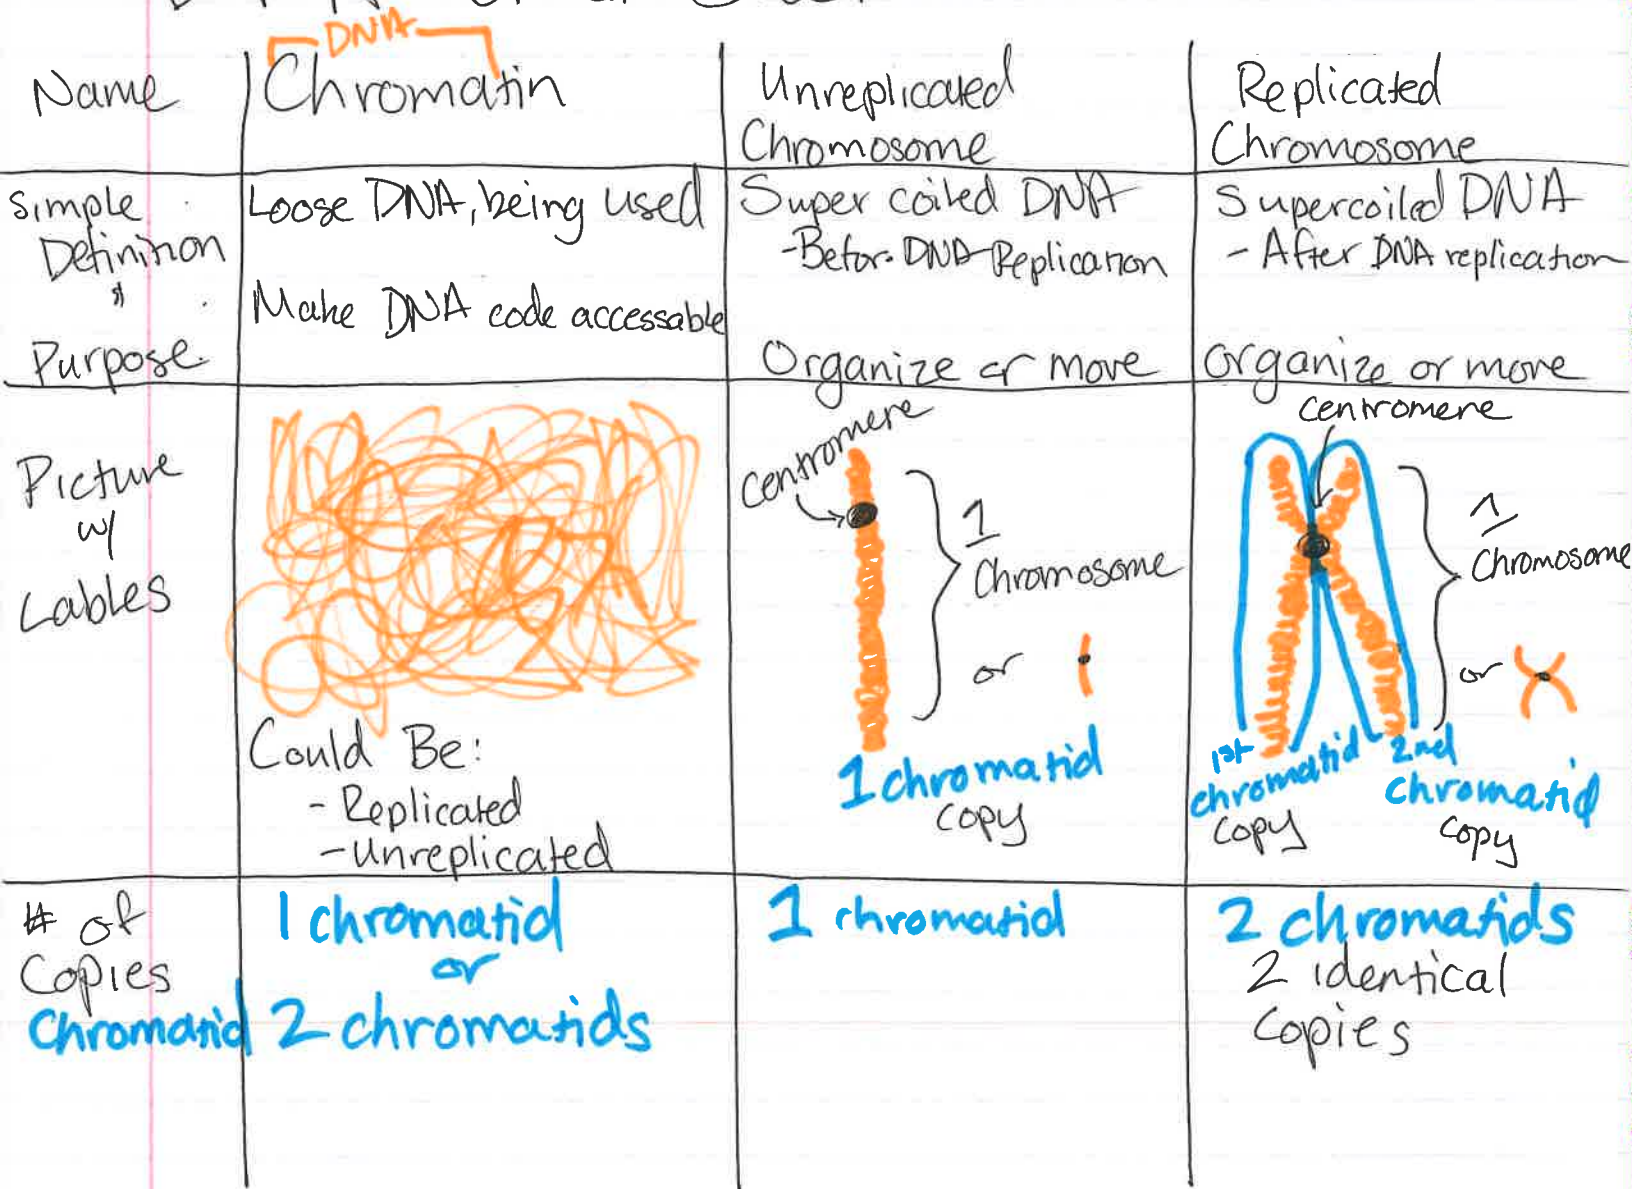 DNA
Name
Chromatin
Unreplicated
Chromosome
Replicated
Chromosome
Simple
Definition
&
Purpose
Loose DNA, being used
Make DNA code accessable
Super coiled DNA
-Befor. DNA Replication
Organize or move
Supercoiled DNA
- After DNA replication
organize or move
Picture
w/
Lables
Could Be:
- Replicated
- Unreplicated
centromere
1
Chromosome
or
1 chromatid
copy
centromere
1
Chromosome
or
1st
chromatid
copy
2nd
chromatid
copy
# of
Copies
Chromatid
1 chromatid
or
2 chromatids
1 chromatid
2 chromatids
2 identical
copies